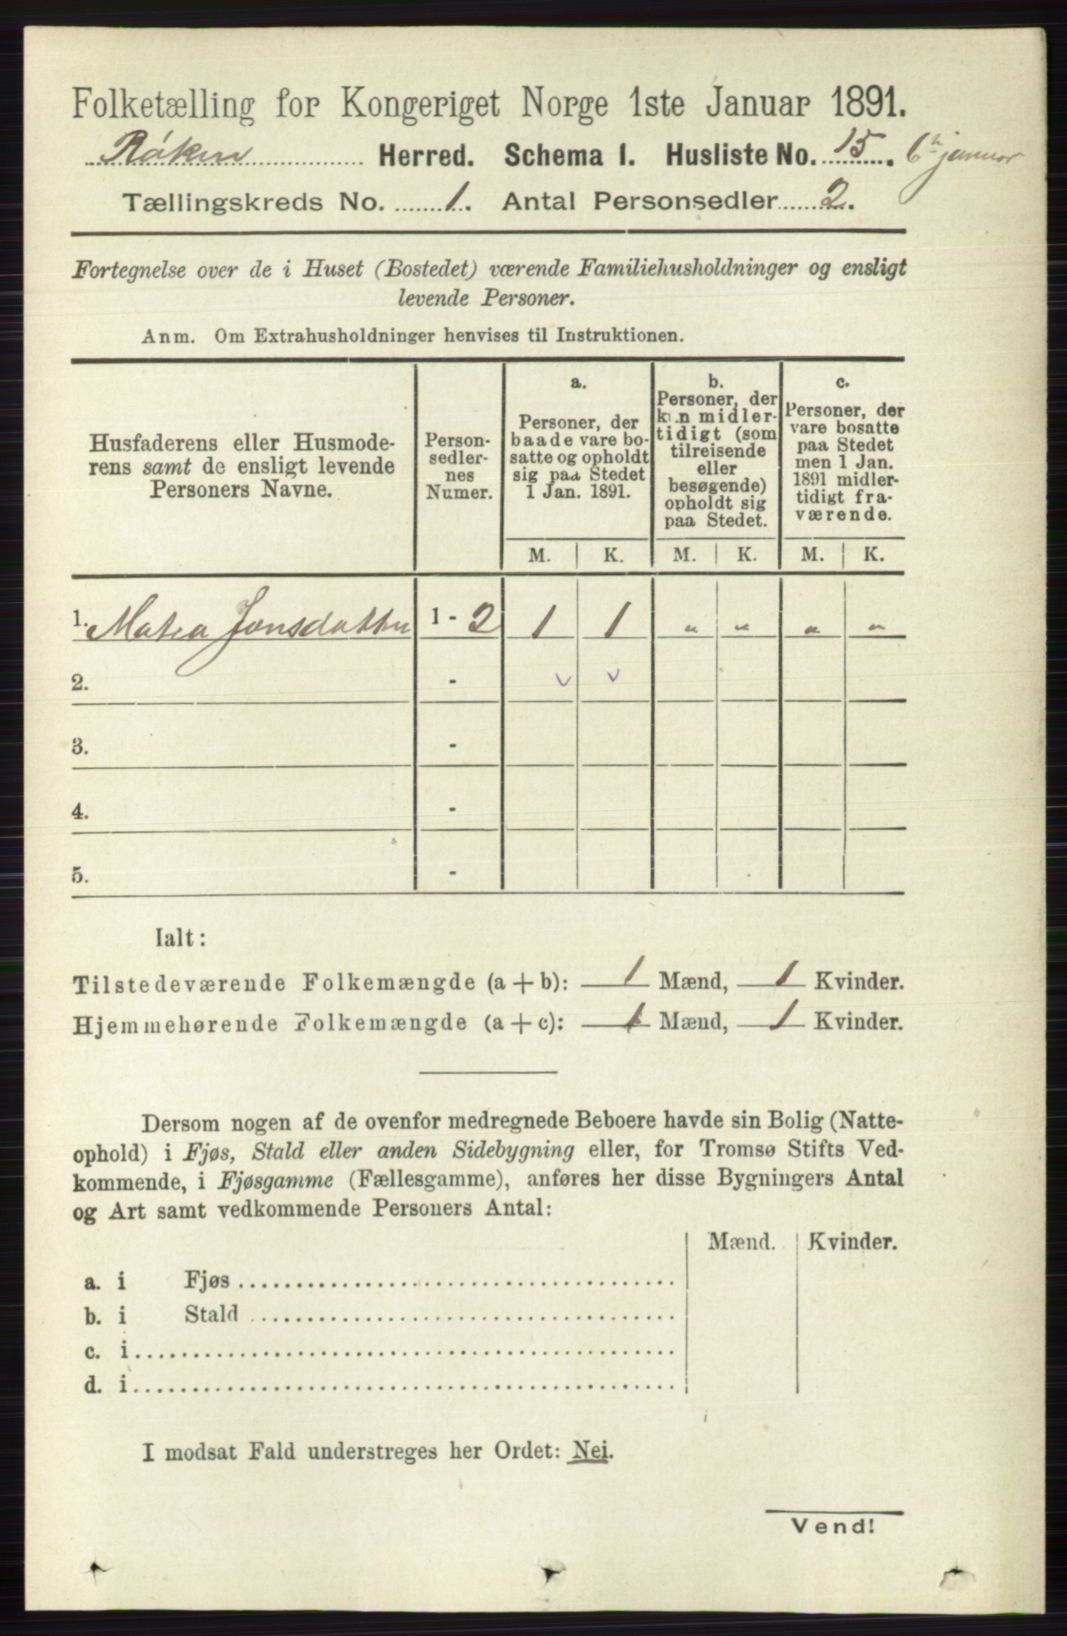 Folketælling for Kongeriget Norge 1ste Januar 1891.
Røken Herred. Schema I. Husliste No. 15. 6te januar
Tællingskreds No. 1. Antal Personsedler 2.
Fortegnelse over de i Huset (Bostedet) værende Familiehusholdninger og ensligt
levende Personer.
Anm. Om Extrahusholdninger henvises til Instruktionen.
Husfaderens eller Husmode-
rens samt de ensligt levende
Personers Navne.
Person-
sedler-
nes
Numer.
a.
Personer, der
baade vare bo-
satte og opholdt
sig paa Stedet
1 Jan. 1891.
b.
Personer, der
kun midler-
tidigt (som
tilreisende
eller
besøgende)
opholdt sig
paa Stedet.
c.
Personer, der
vare bosatte
paa Stedet
men 1 Jan.
1891 midler-
tidigt fra-
værende.
M. K. M. K. M. K.
1. Matea Jonsdatter 1 - 2 1 1 " " " "
2. -
3. -
4. -
5. -
Ialt:
Tilstedeværende Folkemængde (a + b): 1 Mænd, 1 Kvinder.
Hjemmehørende Folkemængde (a + c): 1 Mænd, 1 Kvinder.
Dersom nogen af de ovenfor medregnede Beboere havde sin Bolig (Natte-
ophold) i Fjøs, Stald eller anden Sidebygning eller, for Tromsø Stifts Ved-
kommende, i Fjøsgamme (Fællesgamme), anføres her disse Bygningers Antal
og Art samt vedkommende Personers Antal:
Mænd. Kvinder.
a. i Fjøs
b. i Stald
c. i
d. i
I modsat Fald understreges her Ordet: Nei.
Vend!